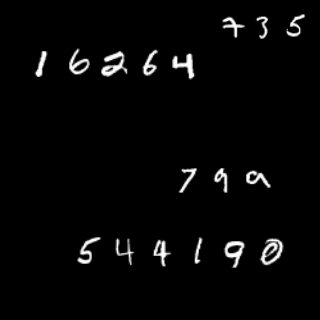 735
16264
799
544190